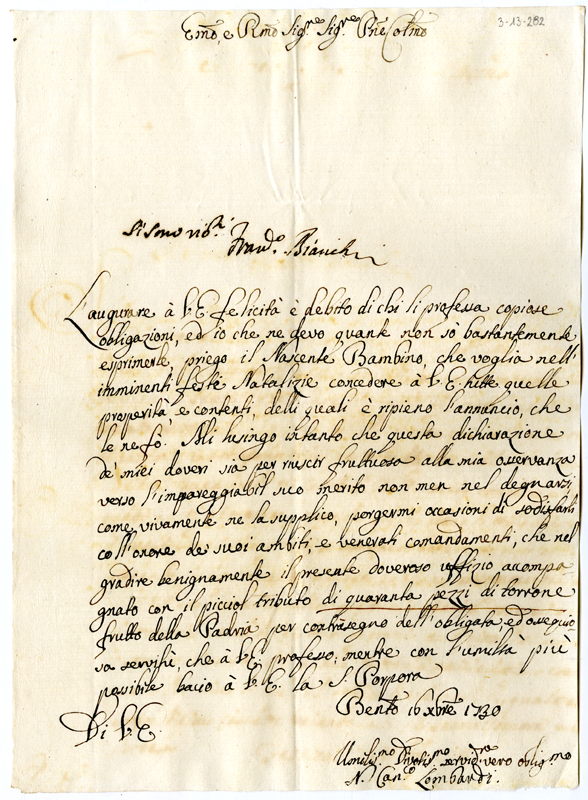 3-13-282
Emo, e Rmo Sig.re Sig.re Pne Colmo
Si sono
Bianchi
L'augurare à V.E. felicità è debito di chi si professa copiose
obligazioni, ed io che ne devo quante non sò bastantemente
esprimerle priego il Nascente Bambino, che voglia nell'
imminenti feste Natalizie concedere à V.E. tutte quelle
prosperità, e contenti, delli quali è ripieno l'annuncio, che
le ne fò. Mi lusingo intanto che questa dichiarazione
de' miei doveri sia per riuscir fruttuosa alla mia osservanza
verso l'impareggiabil suo merito non men nel degnarsi
come, vivamente ne la supplico, porgermi occasioni di sodisfarli
coll'onore de suoi ambiti, e venerati comandamenti, che nel
gradire benignamente il presente doveroso uffizio acompa
gnato con il picciol tributo di quaranta pezzi di torrone
frutto della Padria per contrasegno dell'obligata, ed ossequio
sa servitù, che à V.E. professo, mentre con l'umiltà più
possibile bacio à V.E. la S. Porpora
Bento 16 Xbre 1730
Di V.E.
Umiliss.mo Divotis.mo servid.re vero oblig.mo
N. Can.co Lombardi.